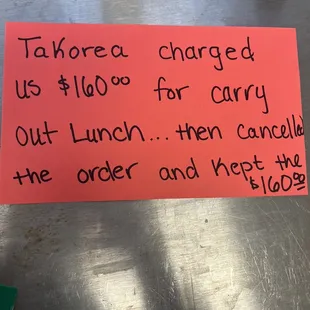 Takorea charged
us $160⁰⁰ for carry
out Lunch... then cancelled
the order and kept the
$160⁰⁰